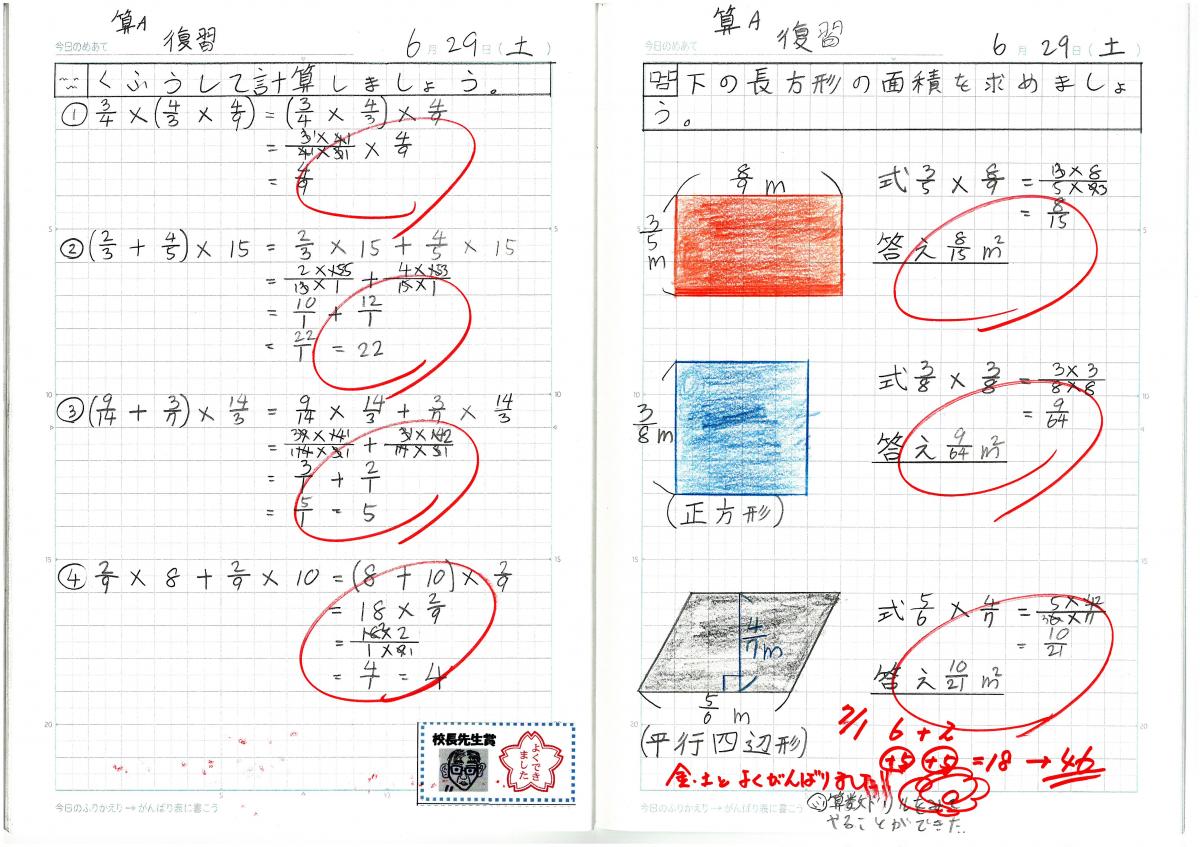 算A
今日のめあて 復習 6月29日(土)
〰 くふうして計算しましょう。
① 3/4 × (4/3 × 4/9) = (3/4 × 4/3) × 4/9
= × 4/9
= 4/9
② (2/3 + 4/5) × 15 = 2/3 × 15 + 4/5 × 15
= 10/1 + 12/1
= 22/1 = 22
③ (9/14 + 3/7) × 14/3 = 9/14 × 14/3 + 3/7 × 14/3
= 3/1 + 2/1
= 5/1 = 5
④ 2/9 × 8 + 2/9 × 10 = (8 + 10) × 2/9
= 18 × 2/9
= 4/1 = 4
校長先生賞
よくできました
今日のふりかえり→がんばり表に書こう
算A
今日のめあて 復習 6月29日(土)
問 下の長方形の面積を求めましょ
う。
8/9 m
3/5 m
式 3/5 × 8/9 =
= 8/15
答え 8/15 m²
3/8 m
(正方形)
式 3/8 × 3/8 = 3×3/8×8
= 9/64
答え 9/64 m²
4/7 m
5/6 m
(平行四辺形)
式 5/6 × 4/7 =
= 10/21
答え 10/21 m²
2/1 6+2
+5 +5 =18 → 46
金・土とよくがんばりました!!
今日のふりかえり→がんばり表に書こう
算数ドリルを
やることができた。